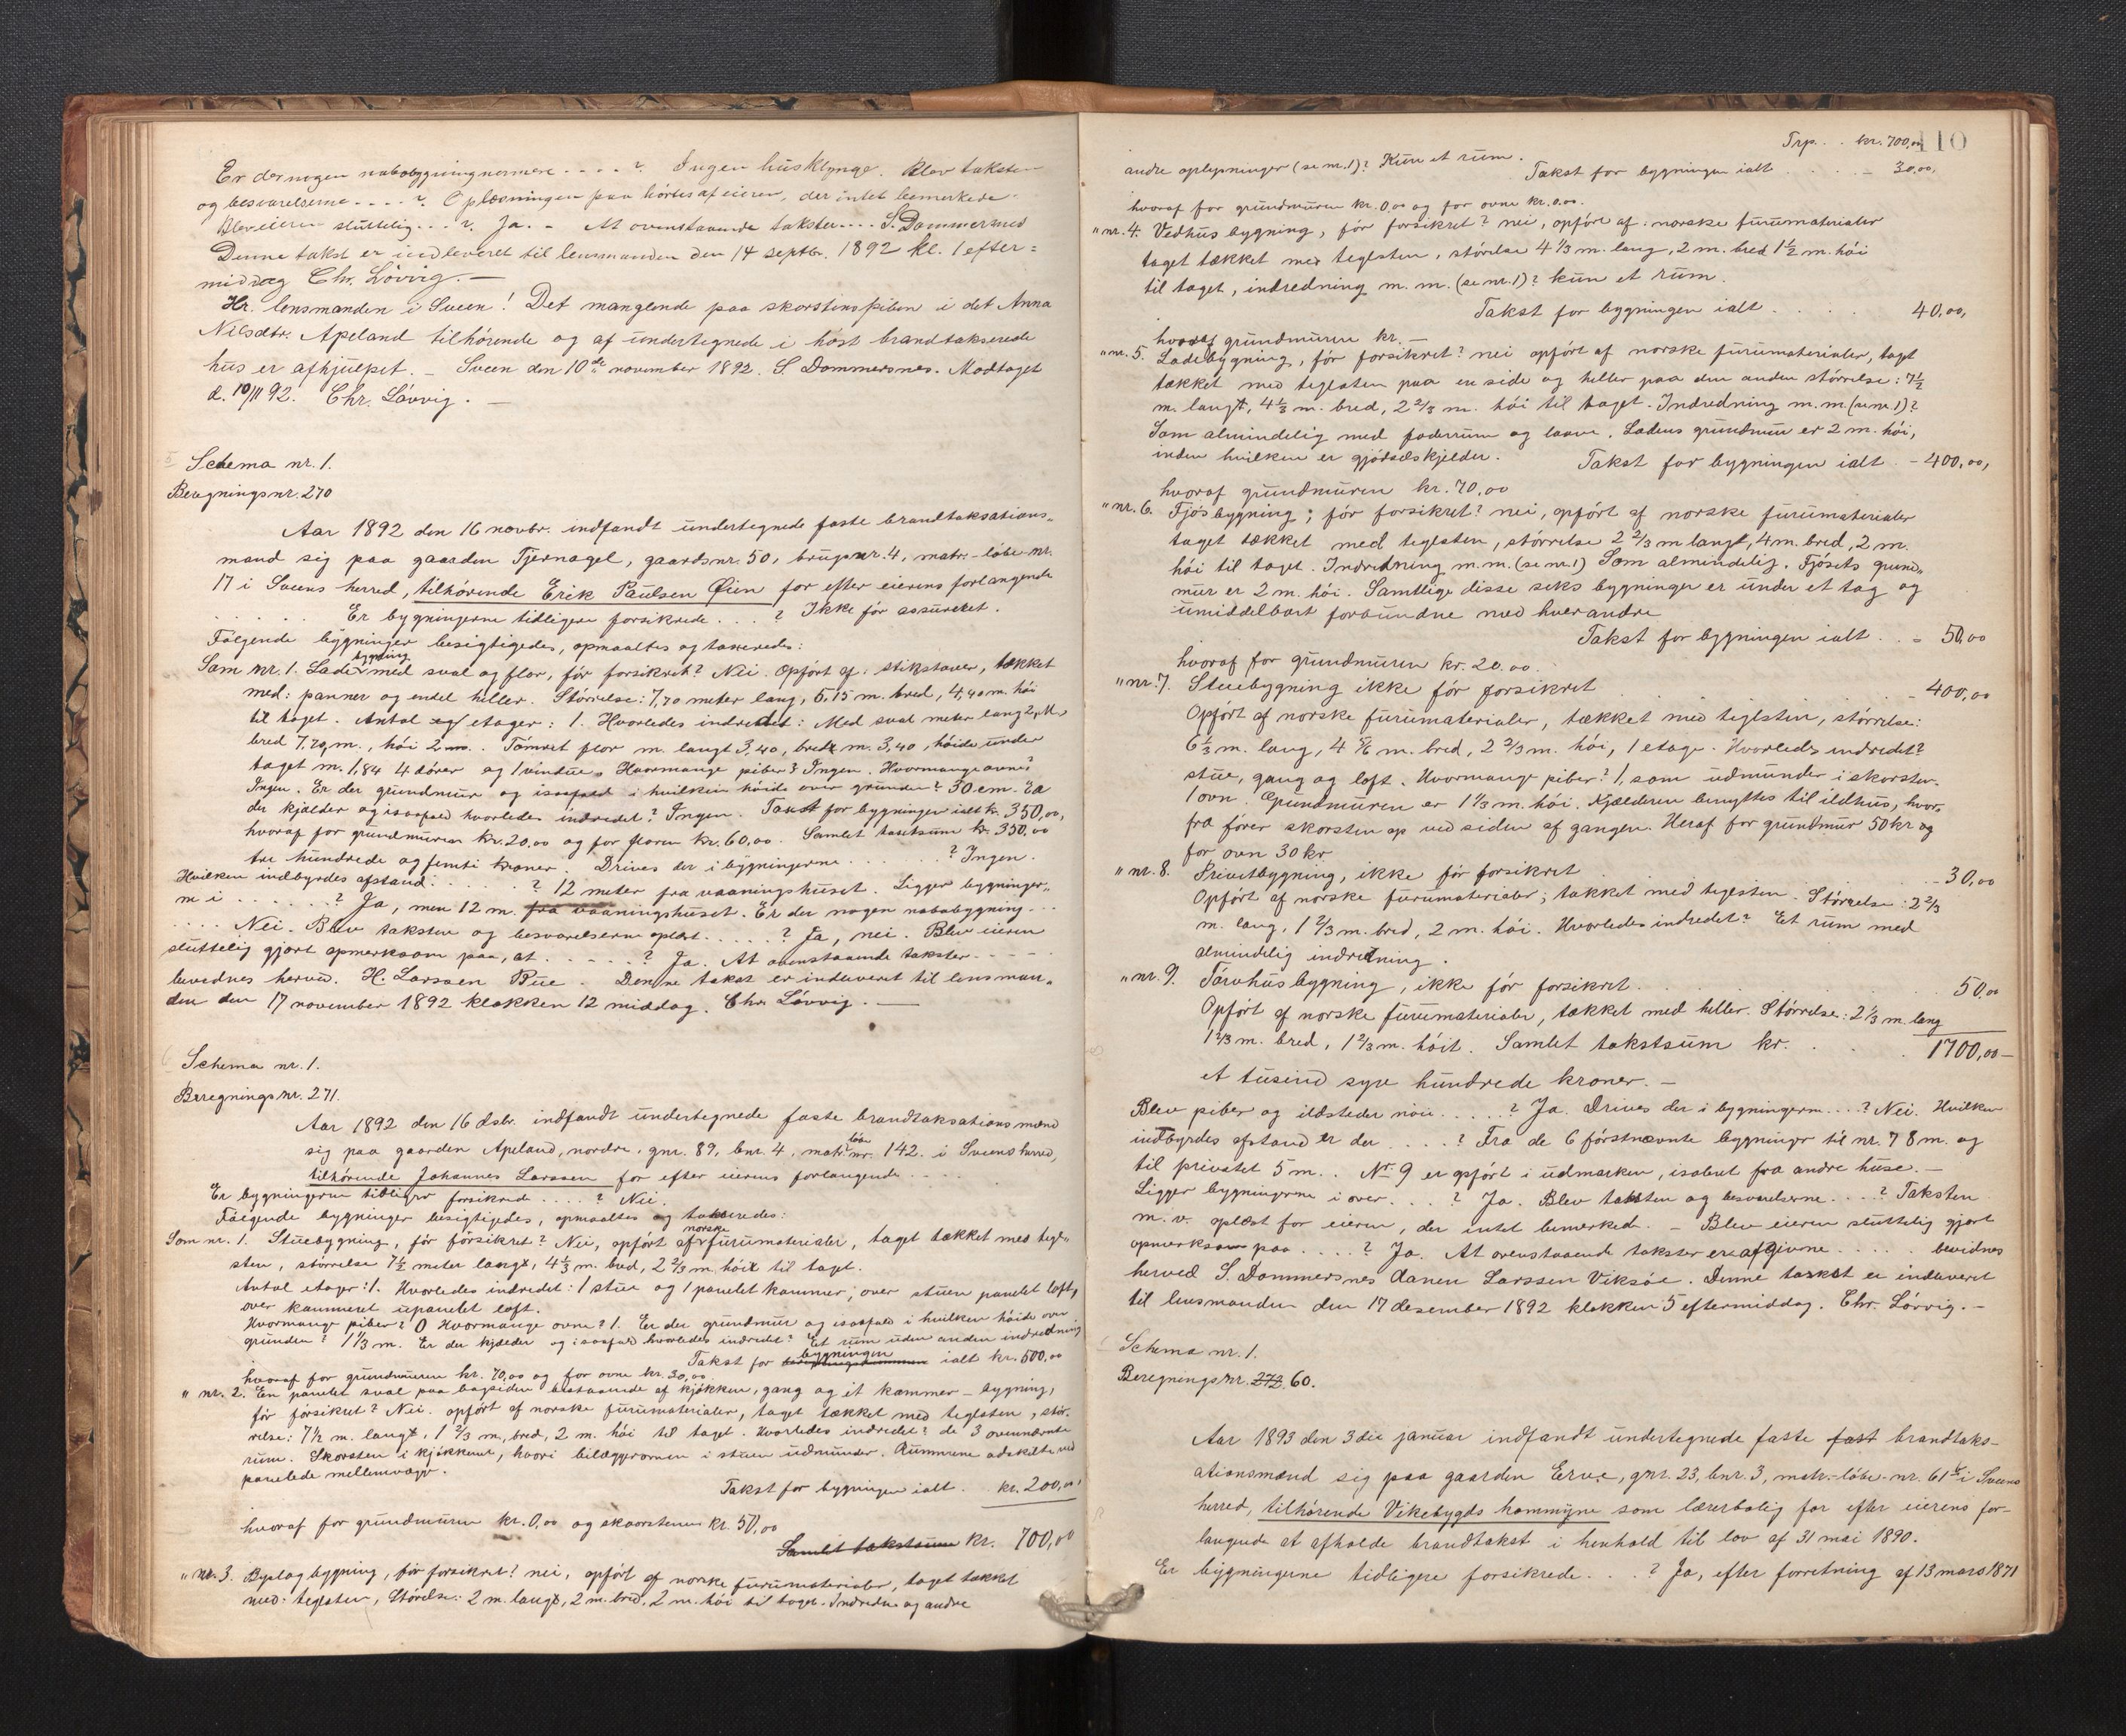 Er der nogen nabobygning nærmere - - - - ? Ingen husklynge. Blev taksten
og besvarelserne - - - - ? Oplæsningen paahørtes af eieren, der intet bemerkede.
Blev eieren sluttelig - - - ? Ja. - At ovenstaaende takster - - - - S. Dommersnes
Denne takst er indleveret til lensmanden den 14 septbr. 1892 kl. 1 efter=
middag Chr. Lövvig. —
Hr. lensmanden i Sveen! Det manglende paa skorstenspiben i det Anna
Nilsdtr. Apeland tilhörende og af undertegnede i höst brandtakserede
hus er afhjulpet. - Sveen den 10de november 1892. S. Dommersnes. Modtaget
d. 10/11 92. Chr. Lövvig. —
Schema nr. 1.
Beregningsnr. 270
Aar 1892 den 16 novbr. indfandt undertegnede faste brandtaksations-
mænd sig paa gaarden Tjernagel, gaardsnr. 50, brugsnr. 4, matr.-löbe-nr.
17 i Sveens herred, tilhörende Erik Paulsen Öien for efter eierens forlangende
. . . . . Er bygningerne tidligere forsikrede . . . ? Ikke för assureret.
Fölgende bygninger besigtigedes, opmaaltes og taxeredes:
Som nr. 1. Ladebygning med sval og flor, för forsikret? Nei. Opfört af: stikstaver, tækket
med: panner og endel heller. Störrelse: 7,70 meter lang, 6.15 m. bred, 4,40 m. höi
til taget. Antal etager: 1. Hvorledes indredet: Med sval meter lang
bred 7,70 m., höi 2 m. Tömret flor m. langt 3,40, bredt m. 3,40, höide under
taget m. 1,84 4 dörer og 1 vindue. Hvormange piber? Ingen. Hvormange ovne?
Ingen. Er der grundmur og isaafald i hvilken höide over grunden? 30 cm. Er
der kjælder og isaafald hvorledes indredet? Ingen. Takst for bygningen ialt kr. 350,00,
hvoraf for grundmuren kr. 20,00 og for floren kr. 60,00. Samlet takstsum kr. 350,00
tre hundrede og femti kroner. Drives der i bygningerne . . . . . . ? Ingen.
Hvilken indbyrdes afstand: . . . . . ? 12 meter fra vaaningshuset. Ligger bygninger-
ne i . . . . . . ? Ja, men 12 m. fra vaaningshuset. Er der nogen nabobygning . . .
. . . . Nei. Blev taksten og besvarelserne oplæst . . . . . ? Ja, nei. Blev eieren
sluttelig gjort opmerksom paa, at . . . . . ? Ja. At ovenstaaende takster - - - -
bevidnes herved. H. Larssen Bue. Denne takst er indleveret til lensman-
den den 17 november 1892 klokken 12 middag. Chr. Lövvig. —
Schema nr. 1.
Beregningsnr. 271.
Aar 1892 den 16 dsbr. indfandt undertegnede faste brandtaksationsmænd
sig paa gaarden Apeland, nordre, gnr. 89, bnr. 4, matr. löbe nr. 142. i Sveens herred,
tilhörende Johannes Larssen for efter eierens forlangende - - - -
Er bygningerne tidligere forsikrede . . . . ? Nei.
Fölgende bygninger besigtigedes, opmaaltes og takseredes:
Som nr. 1. Stuebygning, för forsikret? Nei, opfört af norske furumaterialer, taget tækket med tegl-
sten, störrelse 7½ meter langt, 4⅓ m. bred, 2⅔ m. höit til taget.
Antal etager: 1. Hvorledes indredet: 1 stue og 1 panelet kammer; over stuen panelet loft,
over kammeret upanelet loft.
Hvormange piber? 0 Hvormange ovne? 1. Er der grundmur og isaafald i hvilken höide over
grunden? 1⅓ m. Er der kjælder og isaafald hvorledes indredet? Et rum uden anden indredning
Takst for bygningen ialt kr. 500,00
hvoraf for grundmuren kr. 70,00 og for ovne kr. 30,00.
" nr. 2. En panelet sval paa bagsiden bestaaende af kjökken, gang og et kammer - bygning,
för forsikret? Nei. opfört af norske furumaterialer, taget tækket med teglsten, stör-
relse: 7½ m. langt, 1⅔ m. bred, 2 m. höi til taget. Hvorledes indredet? de 3 ovennævnte
rum. Skorsten i kjökkenet, hvori bilæggerovnen i stuen udmunder. Rummene adskilte ved
panelede mellemvægge.
Takst for bygningen ialt. kr. 200,00
hvoraf for grundmuren kr. 0,00 og skorstenen kr. 50,00
Samlet takstsum kr. 700,00
" nr. 3. Byslagbygning, för forsikret? nei, opfört af norske furumaterialer, taget tækket
med: teglsten, Störelse: 2 m. langt, 2 m. bred, 2 m. höi til taget. Indredn. og andre
Trp. . . kr. 700,00
110
andre oplysninger (se nr. 1)? Kun et rum.
Takst for bygningen ialt . . . . - 30,00,
hvoraf for grundmuren kr. 0,00 og for ovne kr. 0.00.
" nr. 4. Vedhusbygning, för forsikret? nei, opfört af: norske furumaterialer
taget tækket med teglsten, störelse 4⅓ m. lang, 2 m. bred 1½ m. höi
til taget, indredning m. m. (se nr. 1)? kun et rum.
Takst for bygningen ialt . . . . 40,00,
hvoraf grundmuren kr. —
" nr. 5. Ladebygning, för forsikret? nei opfört af norske furumaterialer, taget
tækket med teglsten paa en side og heller paa den anden störrelse: 7½
m. langt, 4⅓ m. bred, 2⅔ m. höi til taget. Indredning m. m. (se nr. 1)?
Som almindelig med foderrum og laave. Ladens grundmur er 2 m. höi,
inden hvilken er gjödselskjelder. Takst for bygningen ialt - 400,00,
hvoraf grundmuren kr. 70,00
" nr. 6. Fjösbygning; för forsikret? nei, opfört af norske furumaterialer
taget tækket med teglsten, störrelse 2⅔ m langt, 4 m. bred, 2 m.
höi til taget. Indredning m. m. (se nr. 1) Som almindelig. Fjösets grund-
mur er 2 m. höi. Samtlige disse seks bygninger er under et tag og
umiddelbart forbundne med hverandre
Takst for bygningen ialt . . - 50,00
hvoraf for grundmuren kr. 20.00.
" nr. 7. Stuebygning ikke för forsikret . . . . . - 400,00
Opfört af norske furumaterialer, tækket med teglsten, störrelse:
6⅓ m. lang, 4⅚ m. bred, 2⅔ m. höi, 1 etage. Hvorledes indredet?
stue, gang og loft. Hvormange piber? 1, som udmunder i skorsten.
1 ovn. Grundmuren er 1⅓ m. höi. Kjælderen benyttes til ildhus, hvor-
fra förer skorsten op ved siden af gangen. Heraf for grundmur 50 kr og
for ovn 30 kr
" nr. 8. Privetbygning, ikke för forsikret . . . . - 30,00
Opfört af norske furumaterialer; tækket med teglsten. Störrelse: 2⅔
m. lang, 1⅔ m. bred, 2 m. höi. Hvorledes indredet? Et rum med
almindelig indretning.
" nr. 9. Törvhusbygning, ikke för forsikret . . . . 50,00
Opfört af norske furumaterialer, tækket med heller. Störrelse: 2⅓ m. lang
1⅔ m. bred, 1⅔ m. höit. Samlet takstsum kr. . . . 1700,00 —
et tusind syv hundrede kroner. —
Blev piber og ildsteder nöie . . . . . ? Ja. Drives der i bygningerne . . . ? Nei. Hvilken
indbyrdes afstand er der . . . . ? Fra de 6 förstnævnte bygninger til nr. 7 8 m. og
til privatet 5 m. . No 9 er opfört i udmarken, isoleret fra andre huse. —
Ligger bygningerne i over . . . ? Ja. Blev taksten og besvarelserne . . . . ? Taksten
m. v. oplæst for eieren, der intet bemerkede. - Blev eieren sluttelig gjort
opmerksom paa . . . . ? Ja. At ovenstaaende takster er afgivne . . . . . bevidnes
herved S. Dommersnes Larssen Viksöe. Denne takst er indleveret
til lensmanden den 17 desember 1892 klokken 5 eftermiddag. Chr. Lövvig. —
Schema nr. 1.
Beregningsnr. 272. 60.
Aar 1893 den 3die januar indfandt undertegnede faste fast brandtaks-
ationsmænd sig paa gaarden Erve, gnr. 23, bnr. 3, matr.-löbe-nr. 61 b i Sveens
herred, tilhörende Vikebygds kommune som lærerbolig for efter eierens for-
langende at afholde brandtakst i henhold til lov af 31 mai 1890.
Er bygningerne tidligere forsikrede . . . ? Ja, efter forretning af 13 mars 1871